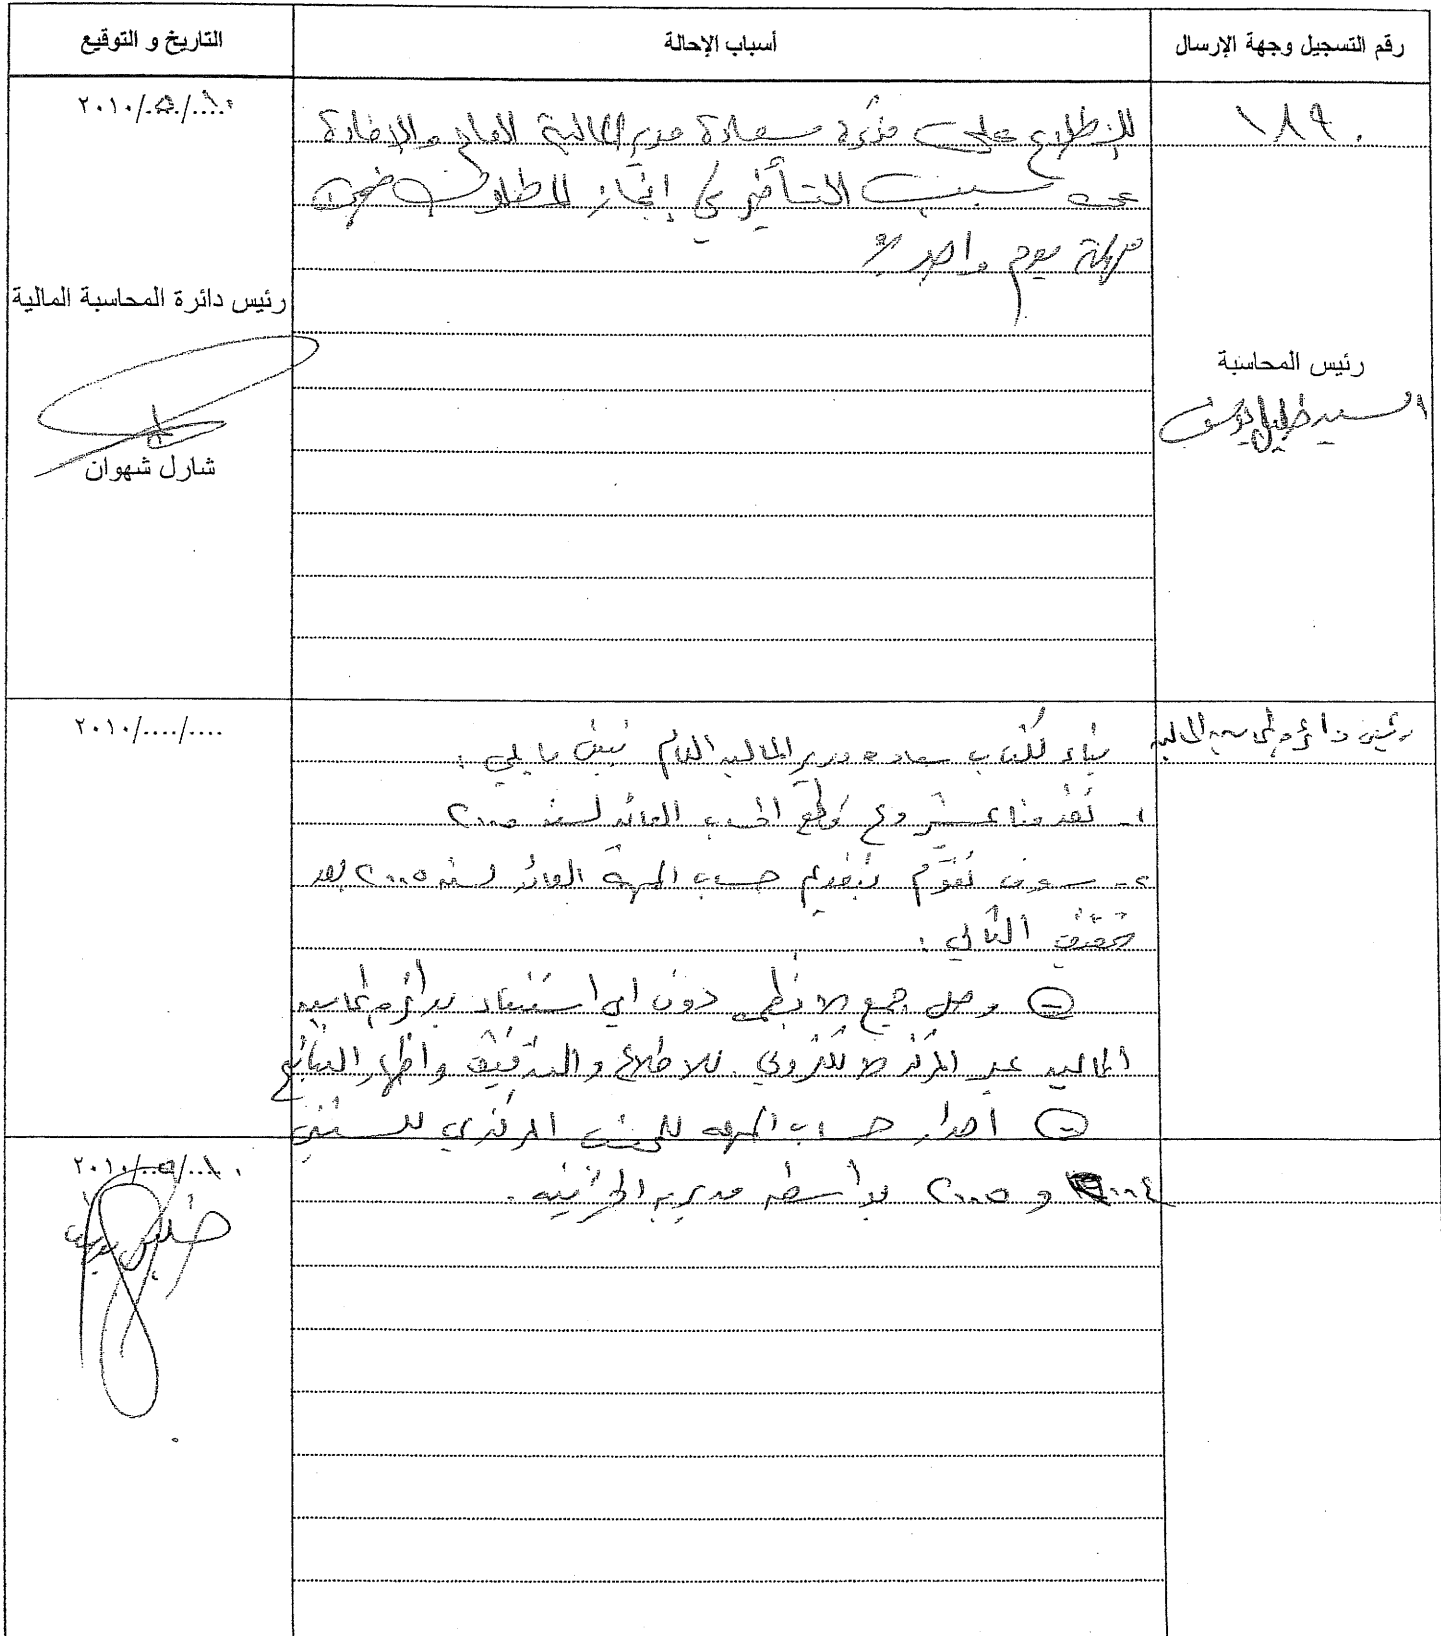 رقم التسجيل وجهة الإرسال
أسباب الإحالة
التاريخ و التوقيع
١٨٩٠
للإطلاع على مذكرة سعادة مدير المالية العام والإفادة
عن سبب التأخير في إنجاز المطلوب ضمن
مهلة يوم واحد
٢٠١٠/٥/١٠
رئيس المحاسبة
السيد خليل يوسف
رئيس دائرة المحاسبة المالية
شارل شهوان
رئيس دائرة المحاسبة المالية
بناء لكتاب سعادة مدير المالية العام نبين ما يلي :
١- تقدمنا بمشروع قطع الحساب العائد لسنة ٢٠٠٥
٢- سوف نقوم بتقديم حساب المهمة العائد لسنة ٢٠٠٥ بعد
تحقيق التالي :
وصل جميع الانظمة دون اي استثناء بدائرة المحاسبة
المالية عبر المركز الالكتروني للاطلاع والتدقيق واظهار النتائج
اصدار حساب المهمة للمحتسب المركزي للسنتين
٢٠٠٤ و ٢٠٠٥ بواسطة مديرية الخزينة .
٢٠١٠/..../....
٢٠١٠/٥/١٠